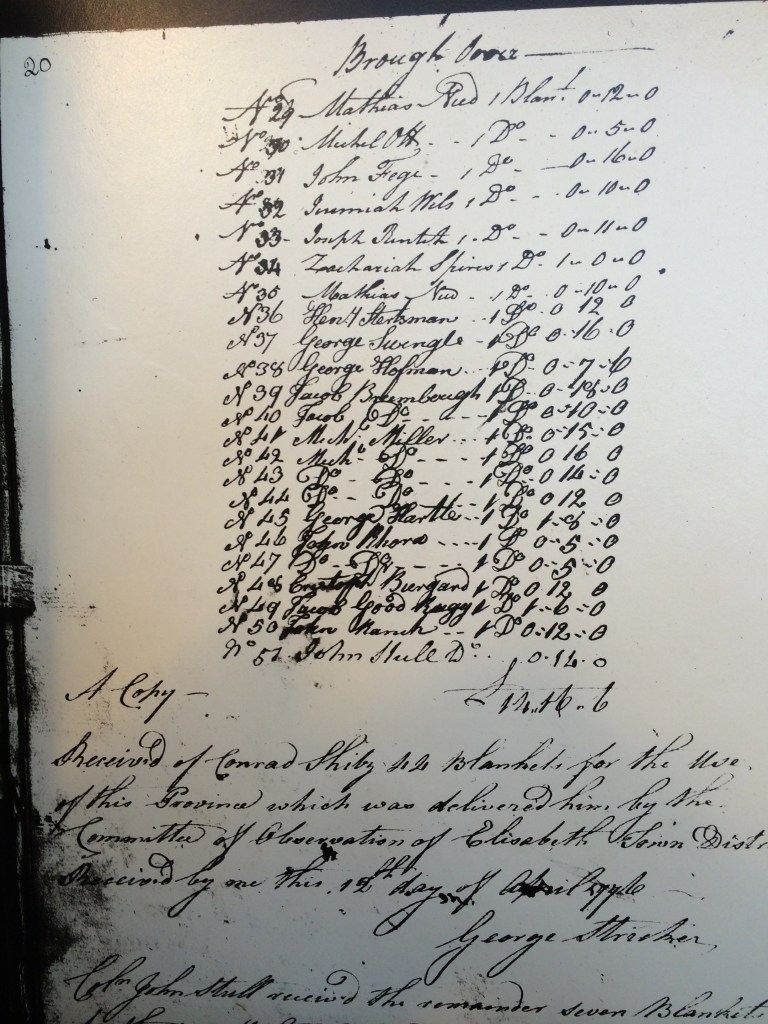 20
Brough Over
No 29 Mathias Nied 1 Blant 0-12-0
No 30 Michel Ott - - 1 Do - 0-5-0
No 31 John Fege - 1 Do - 0-16-0
No 32 Jeremiah Wels 1 Do - 0-10-0
No 33 - Joseph 1 Do - - 0-11-0
No 34 Zachariah Spires 1 Do - 1-0-0
No 35 Mathias Nied - 1 Do - 0-10-0
No 36 Heny 1 Do 0 12 0
No 37 George Swingle - 1 Do 0-16-0
No 38 George Hofman - - 1 Do 0-7-6
No 39 Jacob Brumbough 1 Do 0-18-0
No 40 Jacob Do - - - - 1 Do 0-10-0
No 41 Mich Miller - - 1 Do 0-15-0
No 42 Mich Do - - - 1 Do 0 16 0
No 43 Do - Do - - - 1 Do 0 14-0
No 44 Do - Do - - - 1 Do 0 12 0
No 45 George Hartle - - 1 Do 1-8-0
No 46 John Rhora - - - - 1 Do 0-5-0
No 47 Do - - Do - - 1 Do 0-5-0
No 48 Burgard 1 Do 0 12 0
No 49 Jacob Good 1 Do 1-6-0
No 50 John - - 1 Do 0-12-0
No 51 John Stull Do - - 0-14-0
A Copy - £
Received of Conrad 44 Blankets for the Use
of this Province which was delivered him by the
Committee of Observation of Elisabeth Town Distr
Received by me this 12th day of April 1776
George
Coln John Stull received the remainder seven Blankets